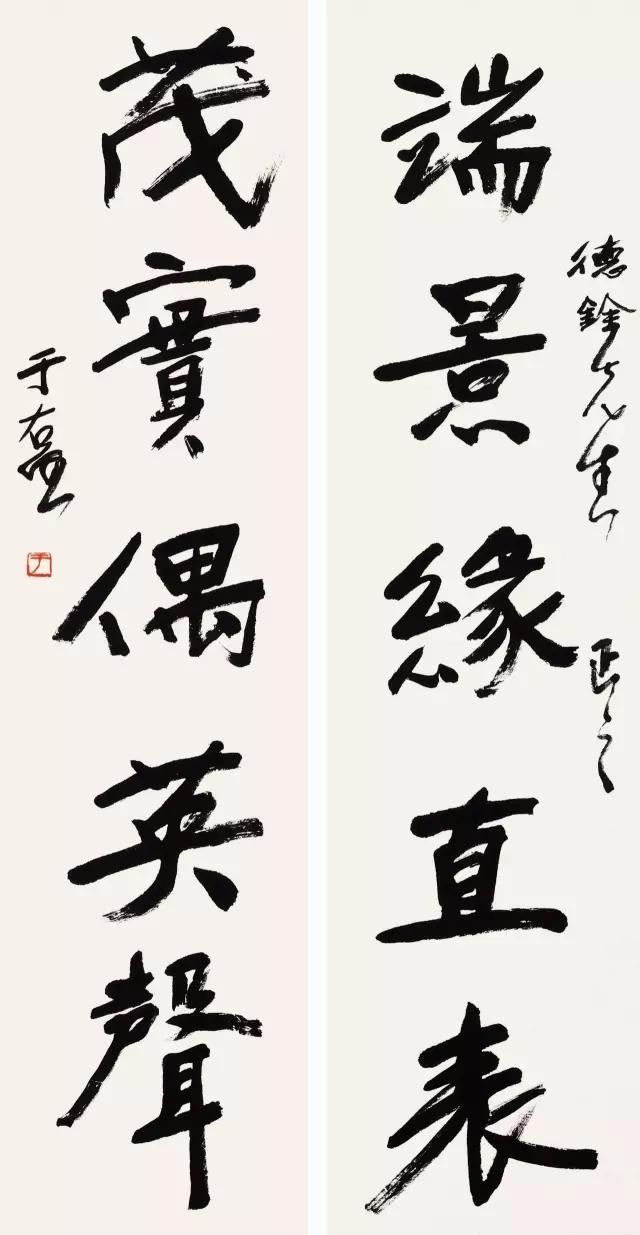 德銓先生
正之
端景緣直表
茂實偶英聲
于右任
于